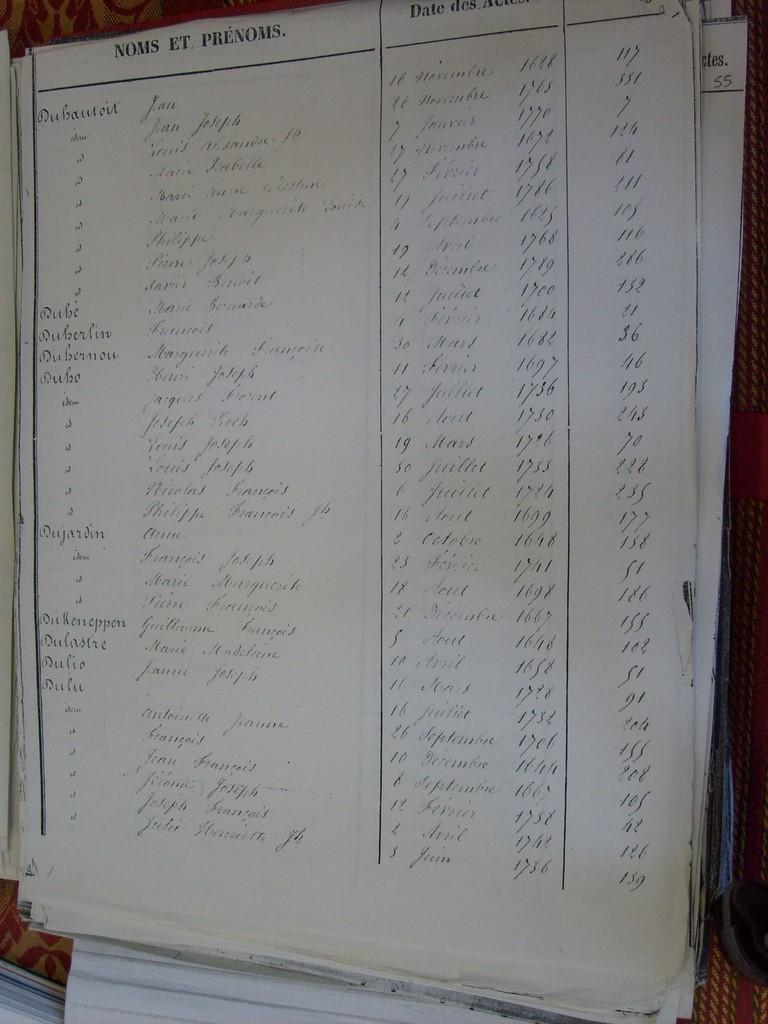 NOMS ET PRÉNOMS. Date des Actes.
ctes.
55
Duhautoit Jean 16 Novembre 1628 117
idem Jean Joseph 28 Novembre 1765 331
id Louis Alexandre Jh 7 Janvier 1770 7
id Marie Isabelle 27 Novembre 1672 124
id Marie Anne Célestine 27 Février 1758 81
id Marie Marguerite Louise 19 Juillet 1786 211
id Philippe 4 Septembre 1625 105
id Pierre Joseph 19 Avril 1768 116
id Xavier Benoit 12 Décembre 1789 286
Duhé Marie 12 Juillet 1700 132
Duherlin François 4 Février 1684 21
Duhernou Marguerite Françoise 30 Mars 1682 36
Duho Henri Joseph 11 Février 1697 46
idem Jacques Florent 27 Juillet 1736 193
id Joseph Roch 16 Aout 1750 243
id Louis Joseph 19 Mars 1726 70
id Louis Joseph 30 Juillet 1733 228
id Nicolas François 6 Juillet 1724 235
id Philippe François Jh 16 Aout 1699 177
Dujardin Anne 2 Octobre 1648 138
idem François Joseph 23 Février 1741 51
id Marie Marguerite 18 Aout 1698 186
id Pierre François 21 Décembre 1667 155
DuKeneppen Guillaume François 5 Aout 1648 102
Dulastre Marie Madeleine 10 Avril 1658 51
Dulio Jeanne Joseph 11 Mars 1728 91
Dulu 16 Juillet 1732 204
idem Antoinette Jeanne 26 Septembre 1706 155
id François 10 Décembre 1644 208
id Jean François 8 Septembre 1667 105
id Jérôme Joseph 12 Février 1738 42
id Joseph François 2 Avril 1742 126
id Julie Henriette Jh 3 Juin 1736 139